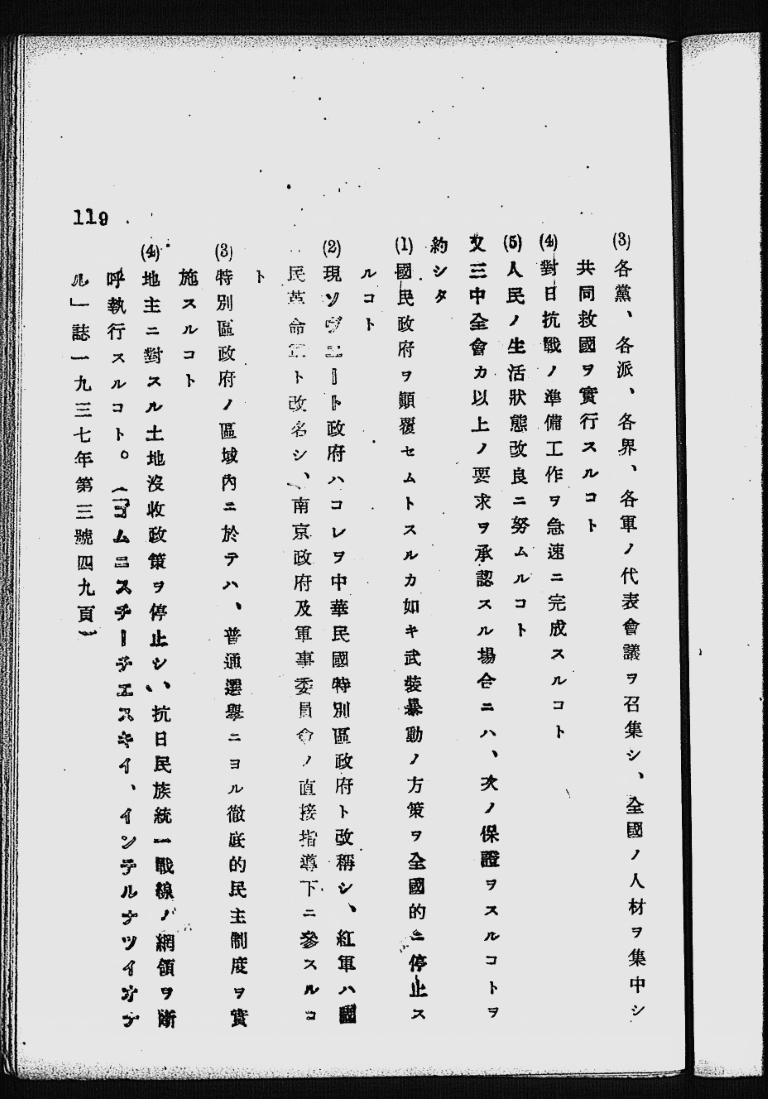 (3) 各黨、各派、各界、各軍ノ代表會議ヲ召集シ、全國ノ人材ヲ集中シ
共同救國ヲ實行スルコト
(4) 對日抗戰ノ準備工作ヲ急速ニ完成スルコト
(5) 人民ノ生活狀態改良ニ努ムルコト
又三中全會カ以上ノ要求ヲ承認スル場合ニハ、次ノ保證ヲスルコトヲ
約シタ
(1) 國民政府ヲ顚覆セムトスルカ如キ武裝暴動ノ方策ヲ全國的ニ停止ス
ルコト
(2) 現ソヴエート政府ハコレヲ中華民國特別區政府ト改稱シ、紅軍ハ國
民革命軍ト改名シ、南京政府及軍事委員會ノ直接指導下ニ參スルコ
ト
(3) 特別區政府ノ區域內ニ於テハ、普通選擧ニヨル徹底的民主制度ヲ實
施スルコト
(4) 地主ニ對スル土地沒收政策ヲ停止シ、抗日民族統一戰線ノ網領ヲ斷
呼執行スルコト。(「コムニスチーチエスキイ、インテルナツイオナ
ル」誌一九三七年第三號四九頁)
119